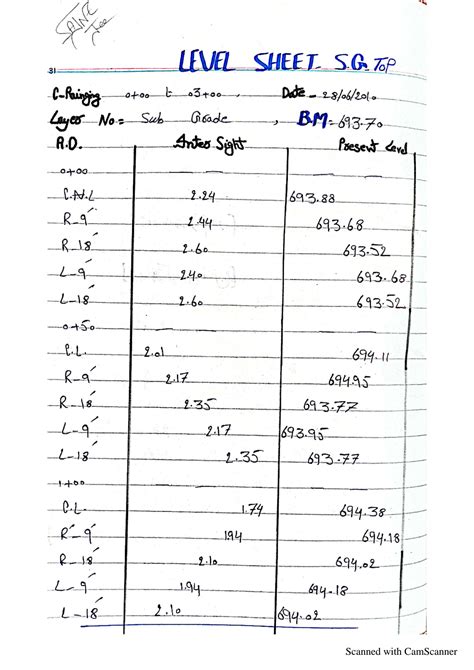 31 LEVEL SHEET S.G. TOP
C-Rainging 0+00 t 03+00, Date - 28/06/2010
Layer No = Sub Grade, B.M = 693.70
R.D. Inter Sight Present Level
0+00
C.L 2.24 693.88
R-9' 2.44 693.68
R-18' 2.60 693.52
L-9' 240 693.68
L-18' 2.60 693.52
0+50
C.L. 2.01 694.11
R-9' 2.17 694.95
R-18' 2.35 693.77
L-9' 2.17 693.95
L-18' 2.35 693.77
1+00
C.L. 1.74 694.38
R-9' 194 694.18
R-18' 2.10 694.02
L-9' 1.94 694.18
L-18' 2.10 694.02
Scanned with CamScanner